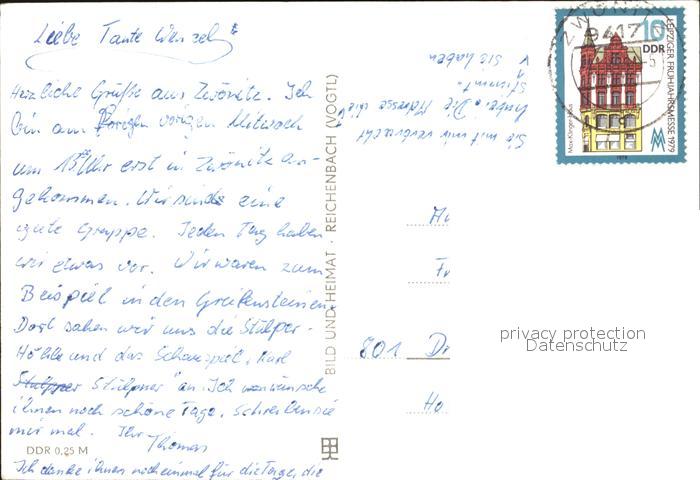 Liebe Tante Wenzel!
Herzliche Grüße aus Zwönitz. Ich
bin am vorigen Mittwoch
um 15 Uhr erst in Zwönitz an-
gekommen. Wir sind eine
gute Gruppe. Jeden Tag haben
wir etwas vor. Wir waren zum
Beispiel in den Greifensteinen.
Dort sahen wir uns die Stülper-
Höhle und das Schauspiel „Karl
Stülpner" an. Ich wünsche
ihnen noch schöne Tage. Schreiben sie
mir mal. Ihr
Thomas
Ich danke ihnen noch einmal für die Tage, die
Sie mit mir verbracht
haben. Die Adresse die
Sie haben
stimmt.
DDR 0,25 M
BILD UND HEIMAT · REICHENBACH (VOGTL)
ZWÖNITZ
9417
10
DDR
LEIPZIGER FRÜHJAHRSMESSE 1979
Max-Klinger-Haus
1979
Fr
801 Dr
Ho
privacy protection
Datenschutz